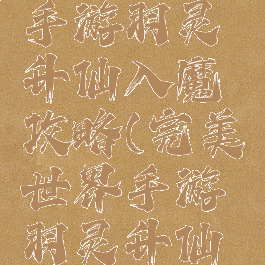 手游羽灵
升仙入魔
攻略(完美
世界手游
羽灵升仙